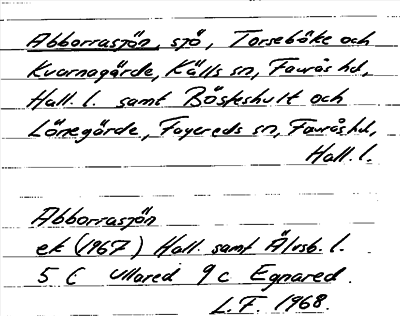 Abborrasjön, sjö, Torsebäke och
Kvarnagärde, Källs sn, Faurås hd,
Hall. l. samt Bösteshult och
Lönegärde, Fagereds sn, Faurås hd,
Hall. l.
Abborrasjön
ek (1967) Hall. samt Älvsb. l.
5 C Ullared 9 c Egnared.
L.F. 1968.